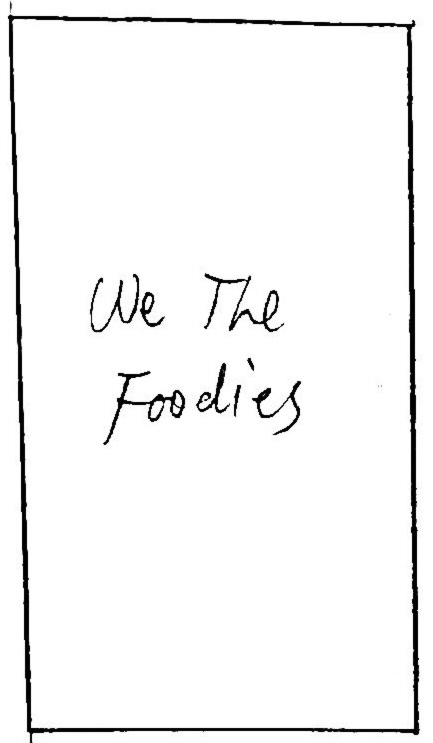 We The
Foodies